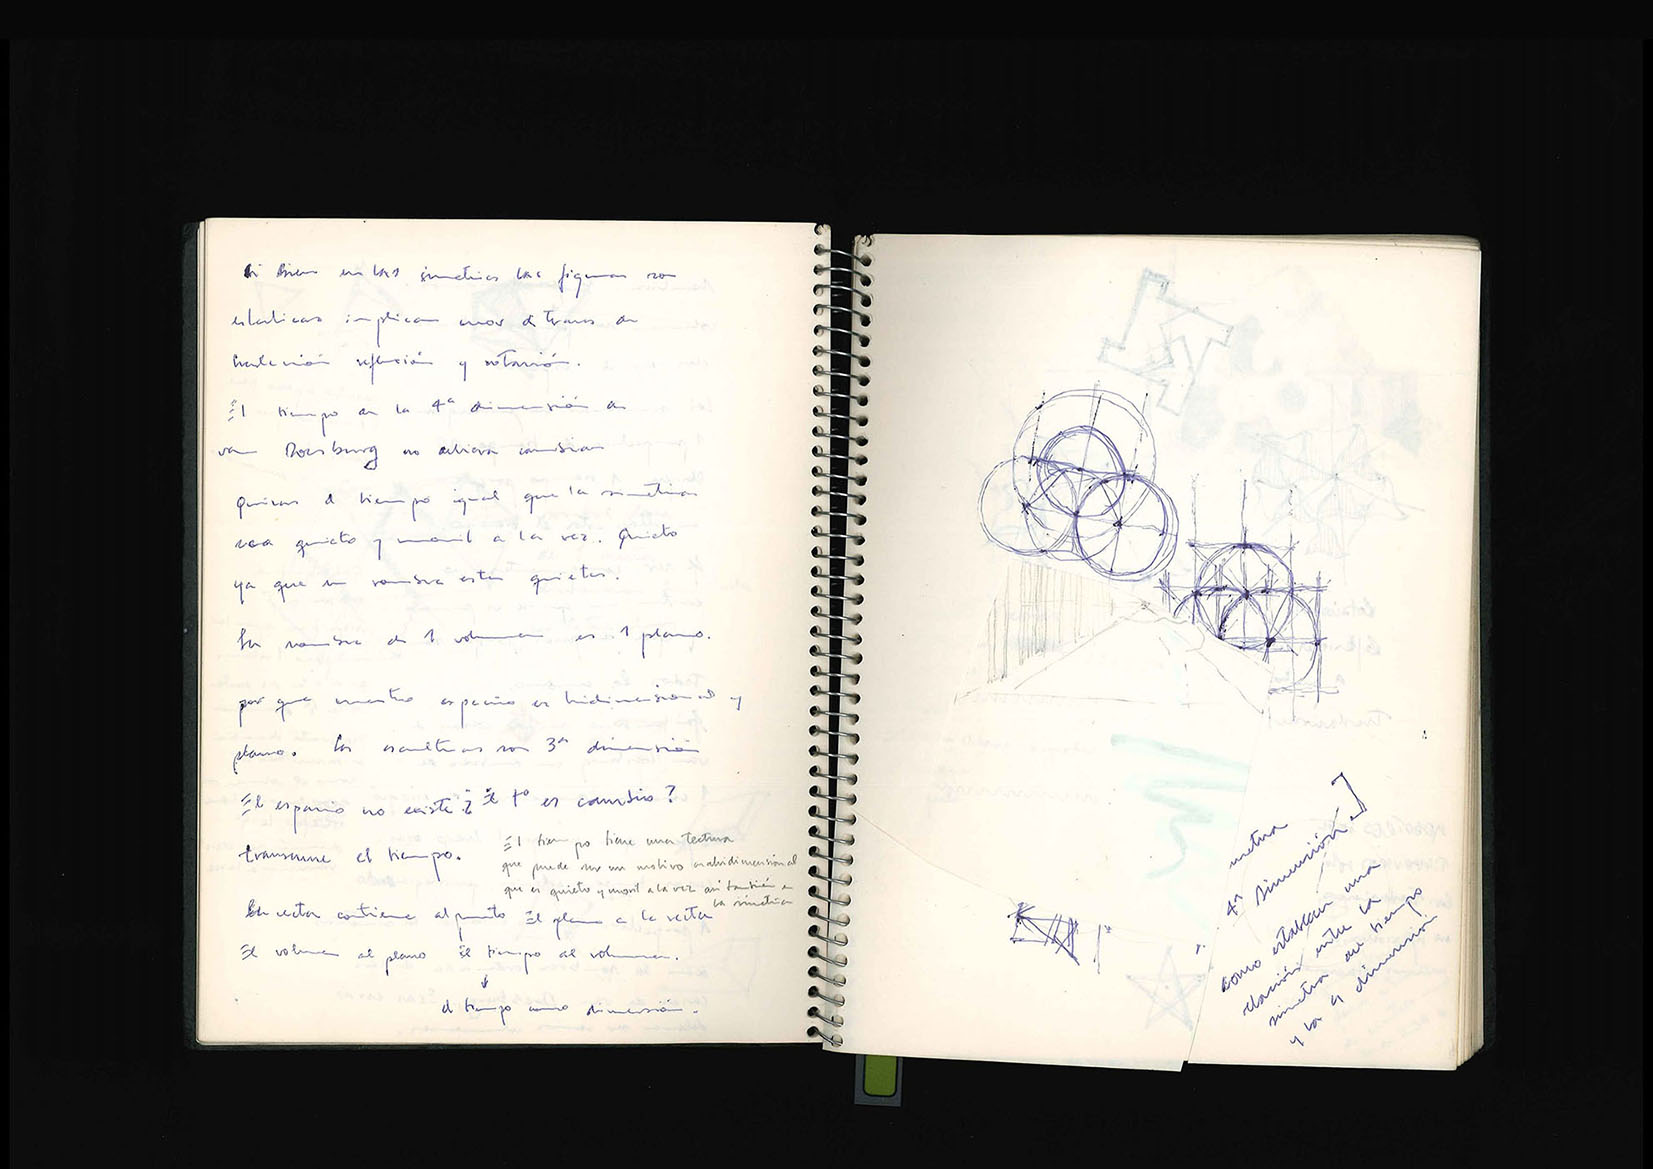 Si bien en las simetrias las figuras son
estaticas implican unos de
traslación reflexión y rotación.
El tiempo en la 4ª dimensión de
van Doesburg no
Quizas el tiempo igual que la simetria
sea quieto y movil a la vez. Quieto
ya que su sombra esta quieta.
La sombra de 1 volumen es 1 plano.
por que nuestro espacio es bidimensional y
plano. Las esculturas son 3ª dimensión
El espacio no existe? El tº es cambio?
transcurre el tiempo.
El tiempo tiene una textura
que puede ser un motivo
que es quieto y movil a la vez asi también
la simetria
La recta contiene al punto El plano a la recta
El volumen al plano El tiempo al volumen.
el tiempo como dimensión.
metria
4ª Dimensión
como establecer una
relación entre la
simetria del tiempo
y la 4 dimensión